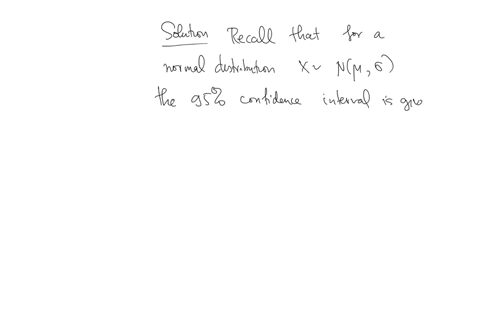 Solution Recall that for a
normal distribution X ~ N(μ, σ)
the 95% confidence interval is giv